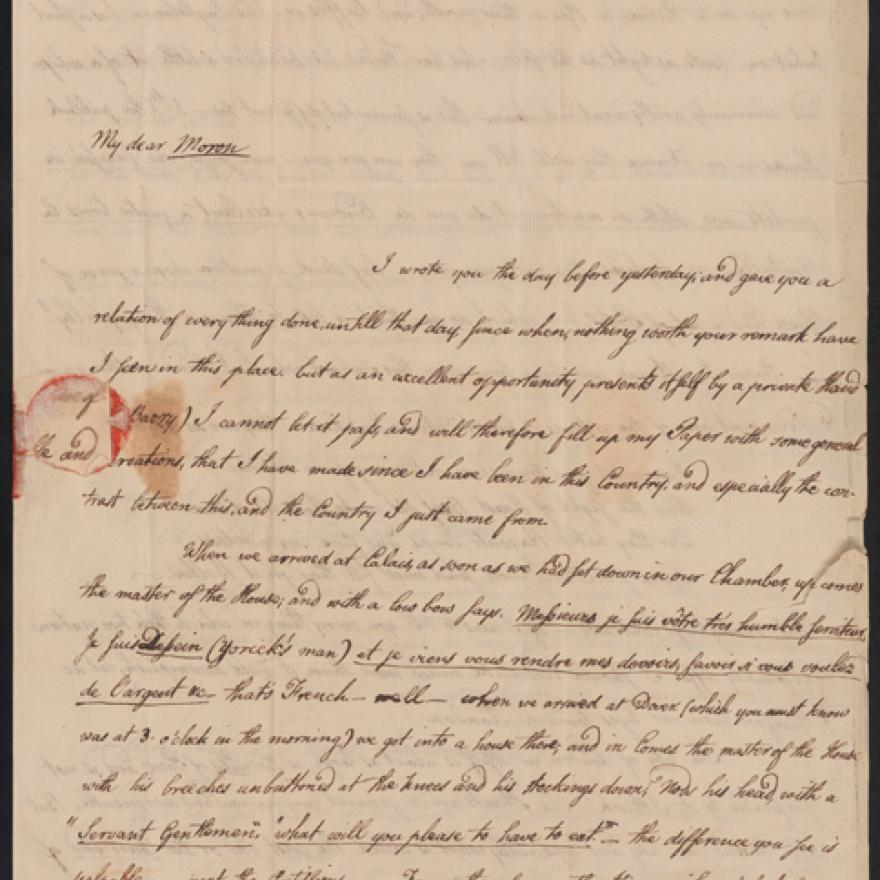 My dear Moron
I wrote you the day before yesterday, and gave you a
relation of every thing done, untill that day, since when, nothing worth your remark have
I seen in this place. but as an excellent opportunity presents itself by a private Hand
Barry) I cannot let it pass, and will therefore fill up my Paper with some general
and that I have made since I have been in this Country, and especially the con-
trast between this, and the Country I just came from.
When we arrived at Calais, as soon as we had set down in our Chamber, up comes
the master of the House, and with a low bow says. Messieurs je suis vôtre trés humble serviteur,
je suis Dessein (Yorick's man) et je viens vous rendre mes devoirs, savoir si vous voulez
de l'argent &c— that's French — well — when we arrived at Dover (which you must know
was at 3 o'clock in the morning) we got into a house there, and in comes the master of the House
with his breeches unbuttoned at the knees and his stockings down, Nods his head, with a
"Servant Gentlemen". "what will you please to have to eat?" — the difference you see is